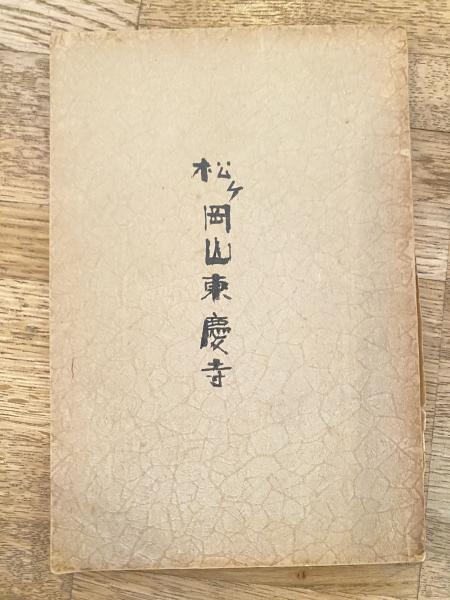 松ヶ岡山東慶寺